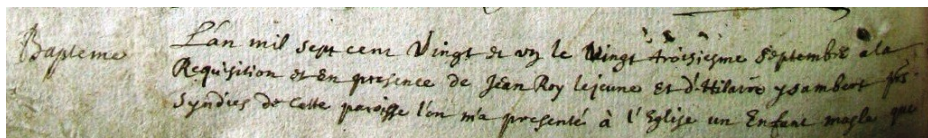 Bapteme
L'an mil sept cent Vingt et vn le vingt troisiesme septembre a la
Requisition et en presence de Jean Roy lejeune et d'Hilaire ysambert
syndics de cette paroisse l'on m'a presenté à l'Eglise un Enfant masle que